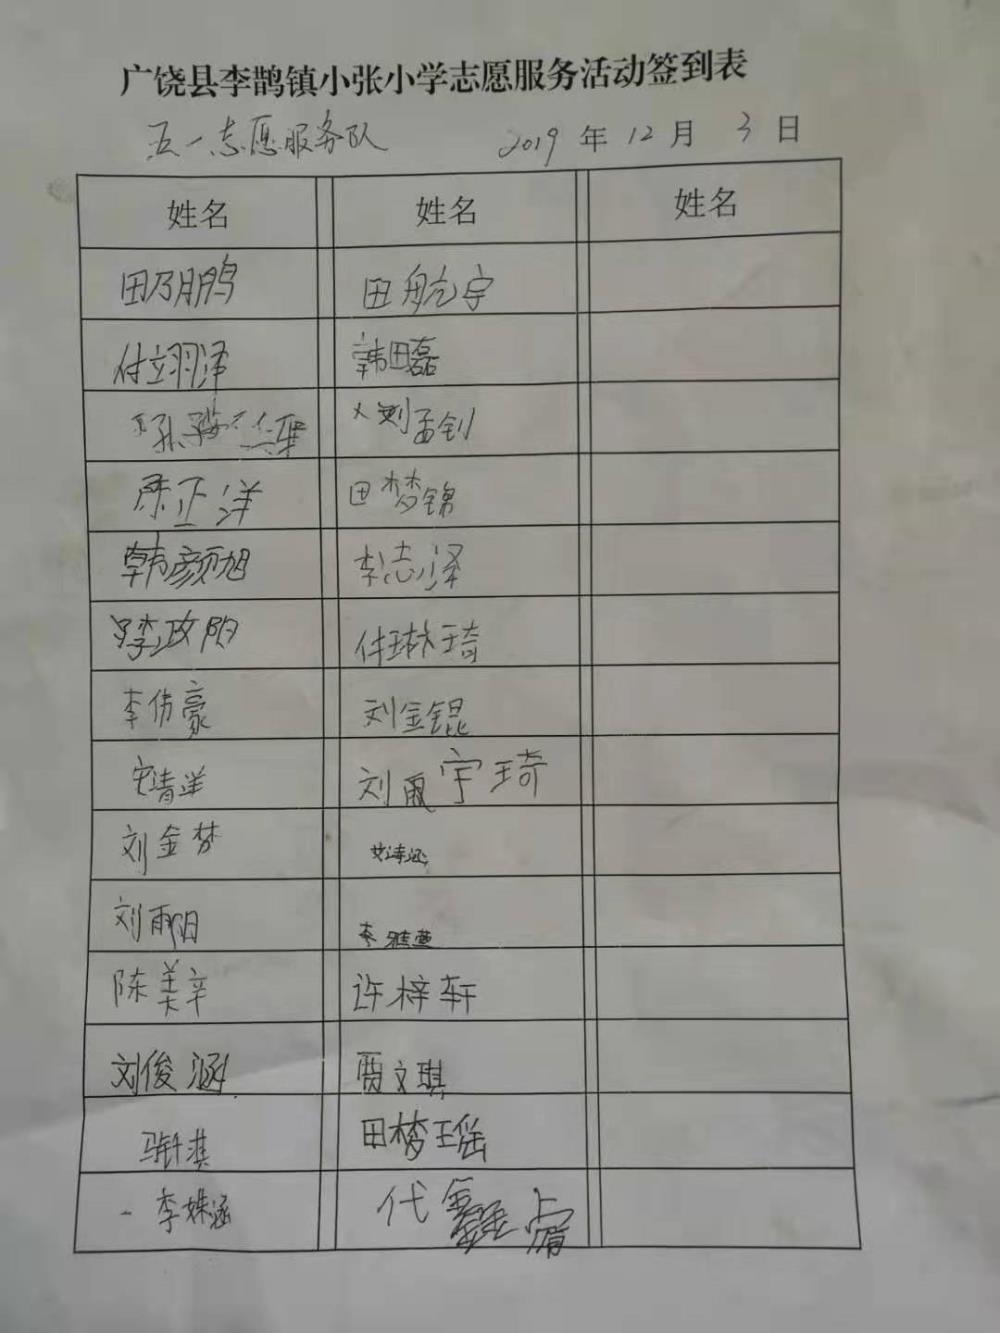 广饶县李鹊镇小张小学志愿服务活动签到表
五一志愿服务队 2019 年 12 月 3 日
姓名 姓名 姓名
田乃鹏 田航宇
付立翔泽 韩田磊
孙 刘孟钊
陈正洋 田梦锦
韩颜旭 李志泽
李政阳 付琳琦
李伟豪 刘金锟
清洋 刘雨宇琦
刘金梦 诗涵
刘雨阳 李雅萱
陈美辛 许梓轩
刘俊涵 贾文琪
淇 田梦瑶
李姝涵 代鑫